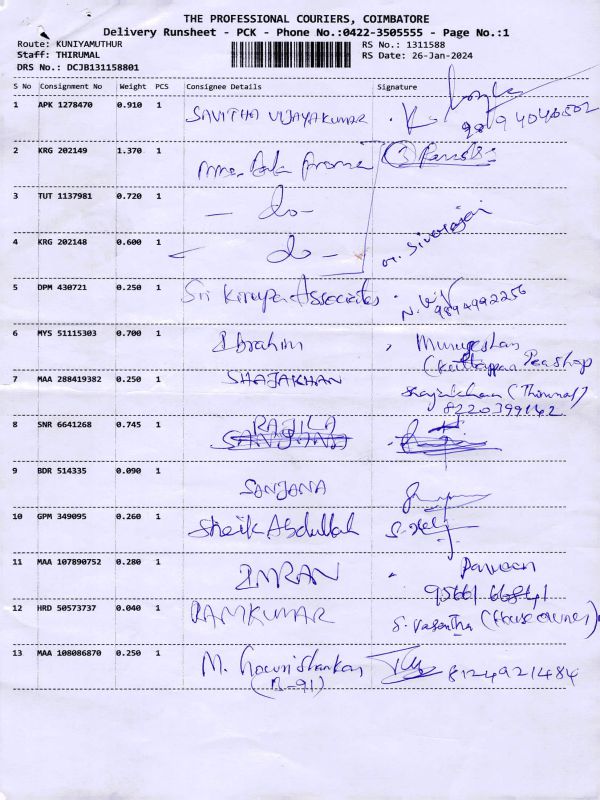 THE PROFESSIONAL COURIERS, COIMBATORE
Delivery Runsheet - PCK - Phone No.:0422-3505555 - Page No.:1
Route: KUNIYAMUTHUR RS No.: 1311588
Staff: THIRUMAL RS Date: 26-Jan-2024
DRS No.: DCJB131158801
S No Consignment No Weight PCS Consignee Details Signature
1 APK 1278470 0.910 1 SAVITHA VIJAYAKUMAR
2 KRG 202149 1.370 1
3 TUT 1137981 0.720 1 - do -
4 KRG 202148 0.600 1 - do -
5 DPM 430721 0.250 1 Sri Kirupa Associates 9894992256
6 MYS 51115303 0.700 1 Ibrahim Murugeshan
7 MAA 288419382 0.250 1 SHAJAKHAN (Thirumal)
8220399142
8 SNR 6641268 0.745 1 RAJILA
SANJANA
9 BDR 514335 0.090 1 SANJANA
10 GPM 349095 0.260 1 Sheik Abdullah
11 MAA 107890752 0.280 1 IMRAN Parveen
95661 66841
12 HRD 50573737 0.040 1 RAMKUMAR S. Vasantha (House owner)
13 MAA 108086870 0.250 1 M. Gowrishankar 8124921484
(B-91)